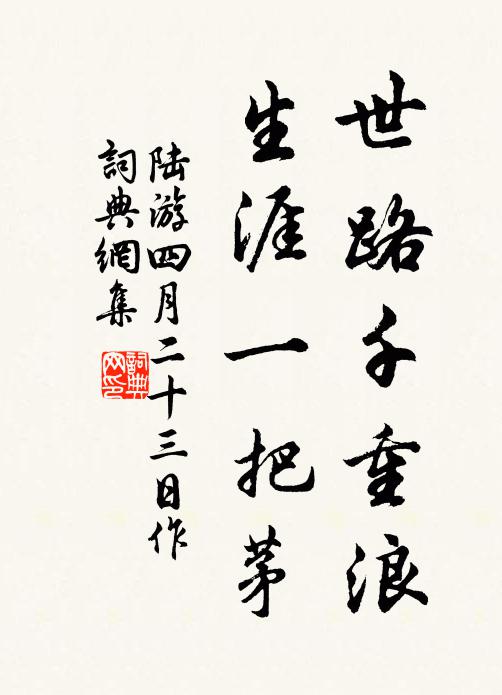 世路千重浪
生涯一把茅
陸游四月二十三日作
詞典網集
詞典
网印